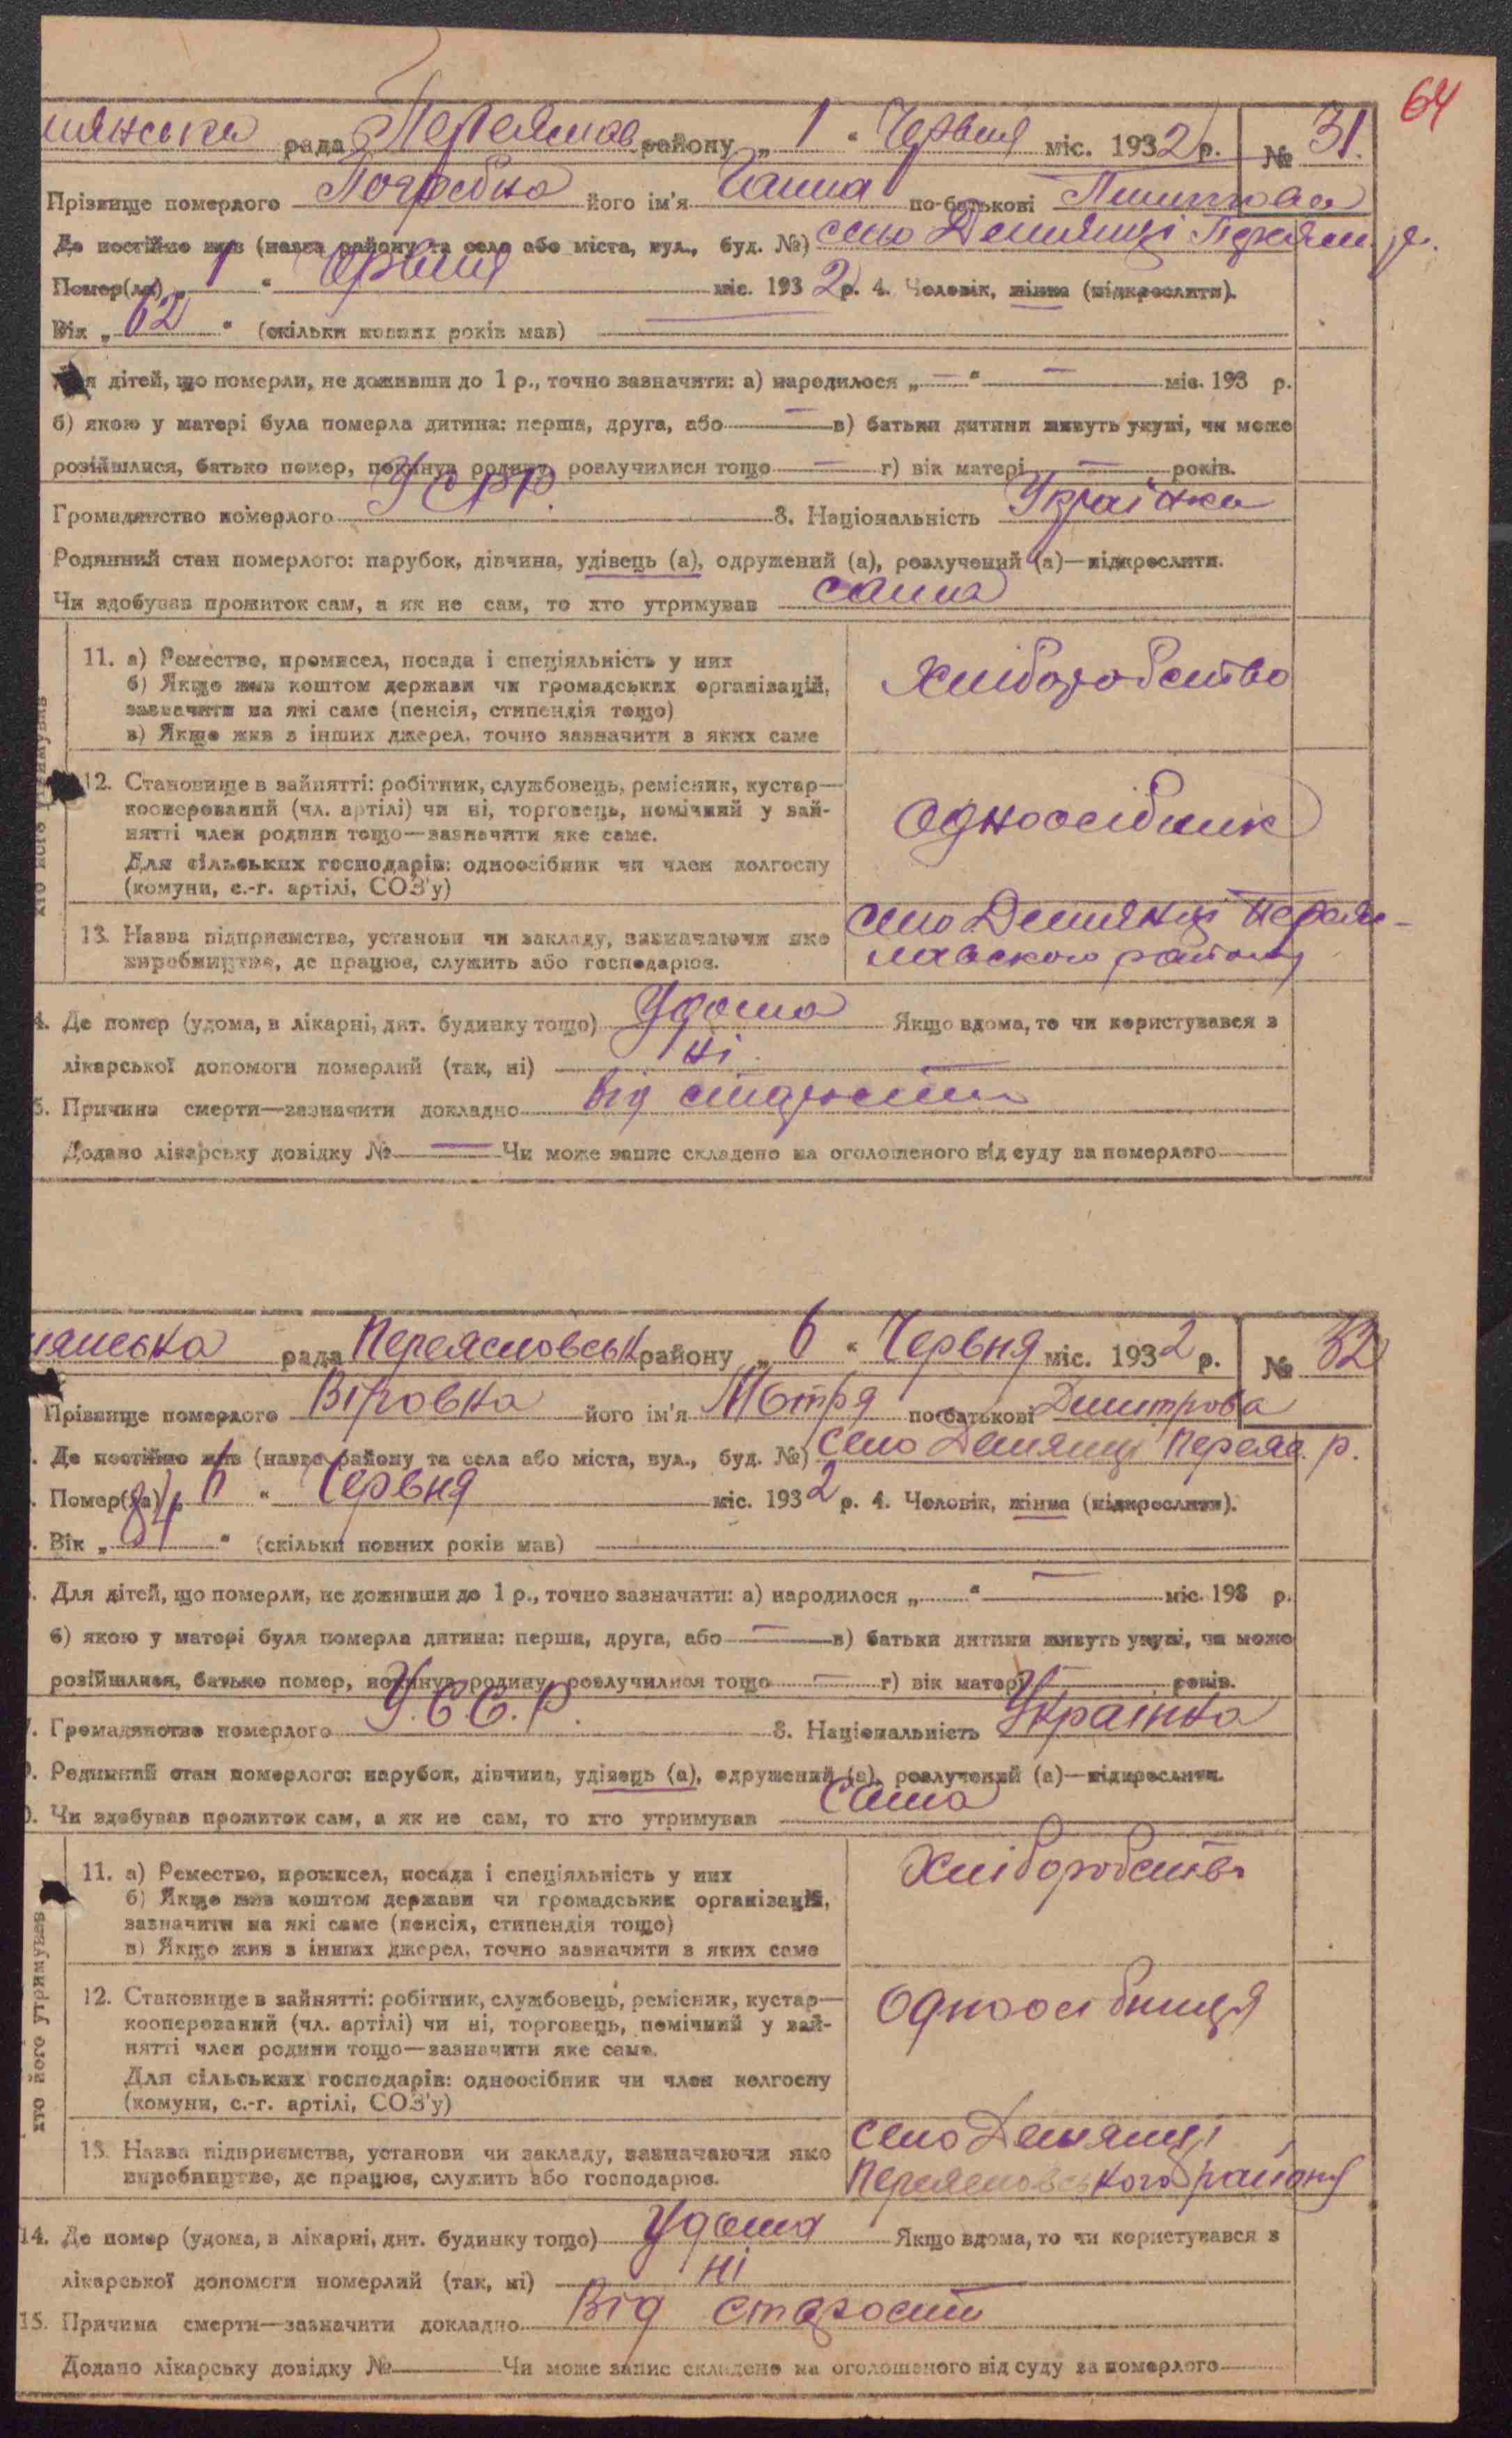 64
рада Переяслав району „ 1 “ Червня міс. 1932 р. № 31.
Прізвище померлого Погребна його ім'я Ганна по-батькові
Де постійно жив (назва району та села або міста, вул., буд. №) село Демянці Переясл. р.
Помер(ла) „ 1 “ Червня міс. 1932 р. 4. Чоловік, жінка (підкреслити).
Вік „ 62 “ (скільки повних років мав)
Для дітей, що померли, не доживши до 1 р., точно зазначити: а) народилося „ — “ — міс. 193 р.
б) якою у матері була померла дитина: перша, друга, або — в) батьки дитини живуть укупі, чи може
розійшлися, батько помер, покинув родину, розлучилися тощо — г) вік матері — років.
Громадянство померлого УСРР. 8. Національність Українка
Родинний стан померлого: парубок, дівчина, удівець (а), одружений (а), розлучений (а)—підкреслити.
Чи здобував прожиток сам, а як не сам, то хто утримував сама
11. а) Ремество, промисел, посада і спеціяльність у них
б) Якщо жив коштом держави чи громадських організацій,
зазначити на які саме (пенсія, стипендія тощо)
в) Якщо жив з інших джерел, точно зазначити з яких саме
Хліборобство
12. Становище в зайнятті: робітник, службовець, ремісник, кустар—
кооперований (чл. артілі) чи ні, торговець, помічний у зай-
нятті член родини тощо—зазначити яке саме.
Для сільських господарів: одноосібник чи член колгоспу
(комуни, с.-г. артілі, СОЗ'у)
Одноосібник
13. Назва підприємства, установи чи закладу, зазначаючи яке
виробництво, де працює, служить або господарює.
село Демянці Переяс-
лавского району
4. Де помер (удома, в лікарні, дит. будинку тощо) Удома Якщо вдома, то чи користувався з
лікарської допомоги померлий (так, ні) ні
5. Причина смерти—зазначити докладно від старости
Додано лікарську довідку № — Чи може запис складено на оголошеного від суду за померлого
рада Переясловськ району „ 6 “ Червня міс. 1932 р. № 32
Прізвище померлого Віровка його ім'я Мотря по-батькові Дмитрова
. Де постійно жив (назва району та села або міста, вул., буд. №) село Демянці Переяс. р.
. Помер(ла) „ 6 “ Червня міс. 1932 р. 4. Чоловік, жінка (підкреслити).
. Вік „ 84 “ (скільки повних років мав)
. Для дітей, що померли, не доживши до 1 р., точно зазначити: а) народилося „ “ — міс. 193 р.
б) якою у матері була померла дитина: перша, друга, або — в) батьки дитини живуть укупі, чи може
розійшлися, батько помер, покинув родину, розлучилися тощо — г) вік матері — років.
. Громадянство померлого У.С.С.Р. 8. Національність Українка
. Родинний стан померлого: парубок, дівчина, удівець (а), одружений (а), розлучений (а)—підкреслити.
. Чи здобував прожиток сам, а як не сам, то хто утримував сама
хто його утримував
11. а) Ремество, промисел, посада і спеціяльність у них
б) Якщо жив коштом держави чи громадських організацій,
зазначити на які саме (пенсія, стипендія тощо)
в) Якщо жив з інших джерел, точно зазначити з яких саме
Хліборобство
12. Становище в зайнятті: робітник, службовець, ремісник, кустар—
кооперований (чл. артілі) чи ні, торговець, помічний у зай-
нятті член родини тощо—зазначити яке саме.
Для сільських господарів: одноосібник чи член колгоспу
(комуни, с.-г. артілі, СОЗ'у)
Одноосібниця
13. Назва підприємства, установи чи закладу, зазначаючи яке
виробництво, де працює, служить або господарює.
село Демянці
Переясловського району
14. Де помер (удома, в лікарні, дит. будинку тощо) Удома Якщо вдома, то чи користувався з
лікарської допомоги померлий (так, ні) ні
15. Причина смерти—зазначити докладно Від старости
Додано лікарську довідку № Чи може запис складено на оголошеного від суду за померлого